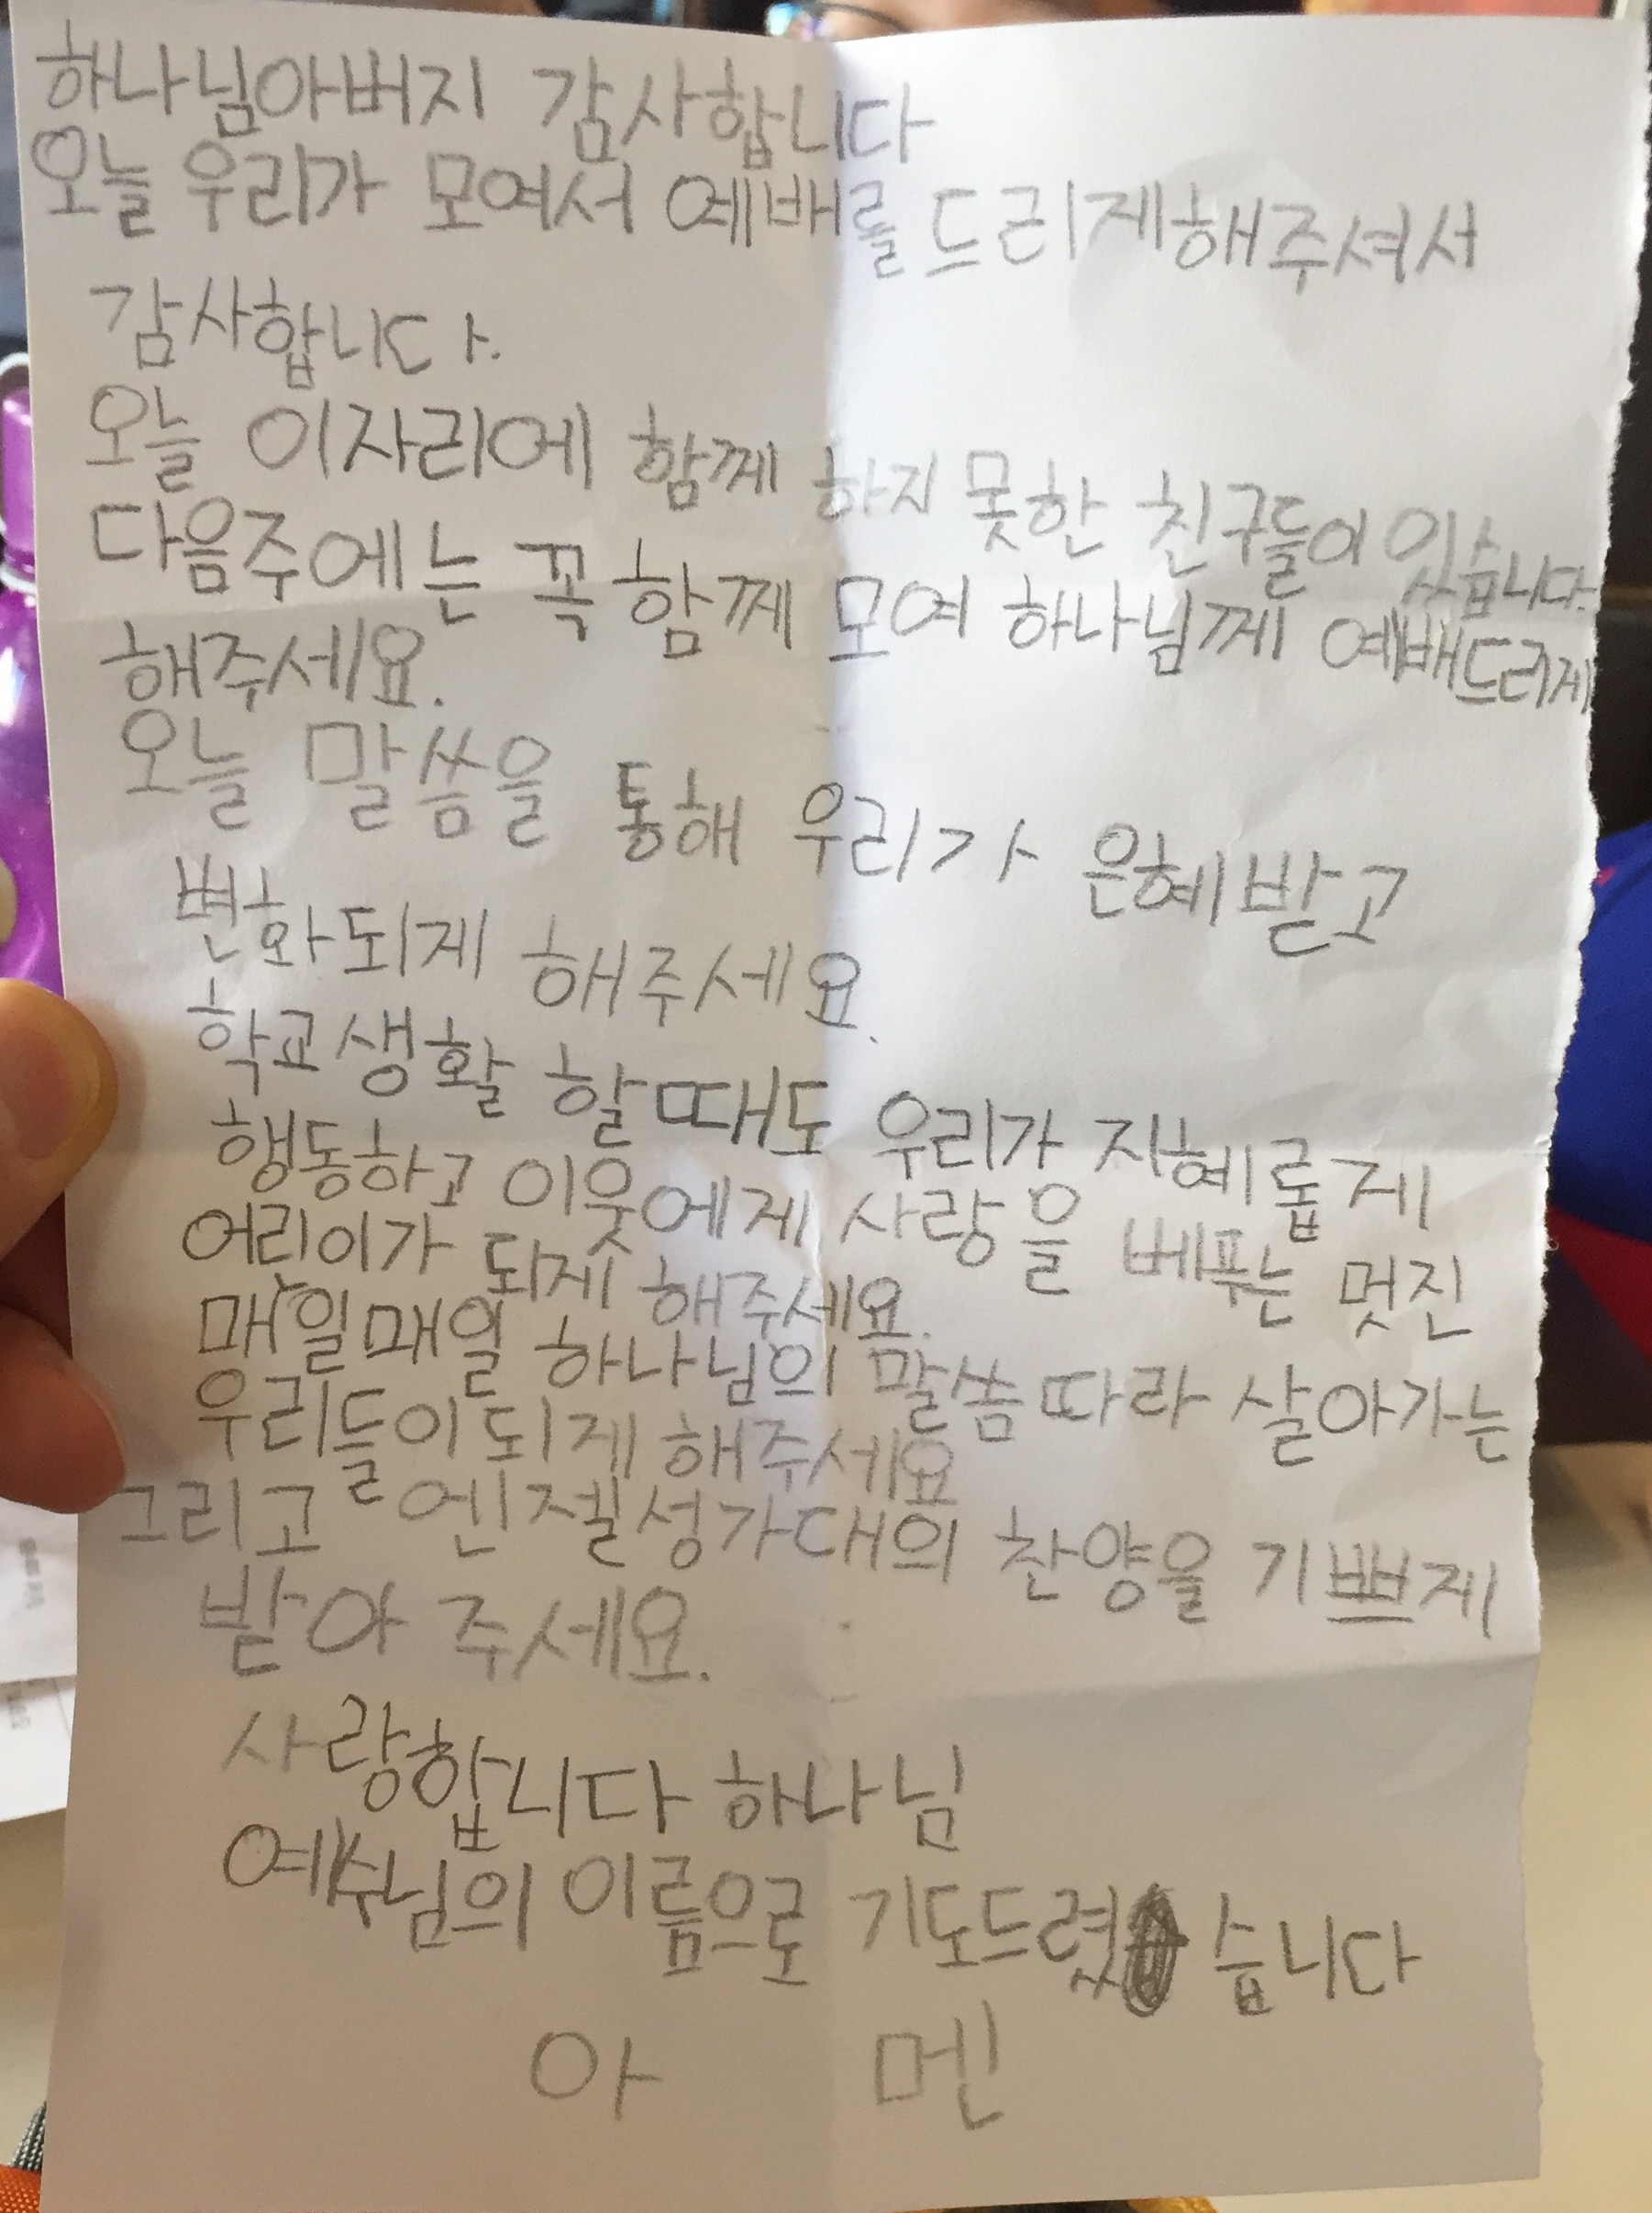 하나님아버지 감사합니다
오늘 우리가 모여서 예배를 드리게해주셔서
감사합니다.
오늘 이자리에 함께 하지 못한 친구들이 있습니다.
다음주에는 꼭 함께 모여 하나님께 예배드리게
해주세요.
오늘 말씀을 통해 우리가 은혜받고
변화되게 해주세요.
학교생활 할때도 우리가 지혜롭게
행동하고 이웃에게 사랑을 베푸는 멋진
어린이가 되게 해주세요.
매일매일 하나님의 말씀 따라 살아가는
우리들이되게 해주세요
그리고 엔젤성가대의 찬양을 기쁘게
받아 주세요.
사랑합니다 하나님
예수님의 이름으로 기도드렸습니다
아 멘